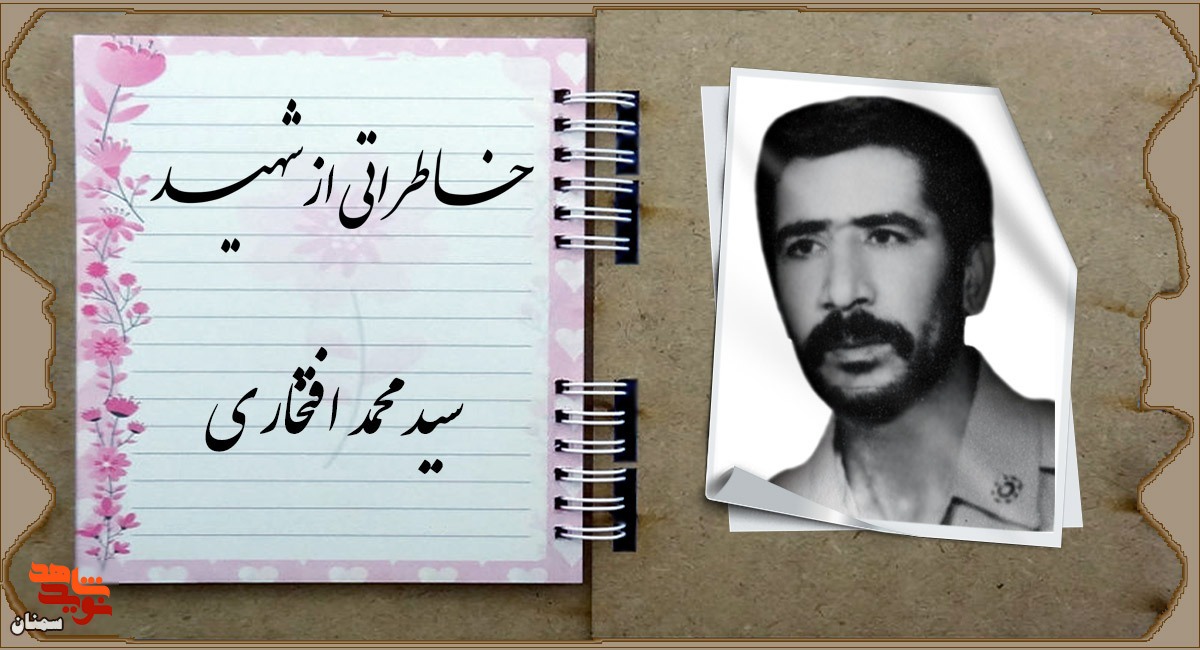 خاطراتی از شهید
سید محمد افتخاری
نوید شاهد
سمنان